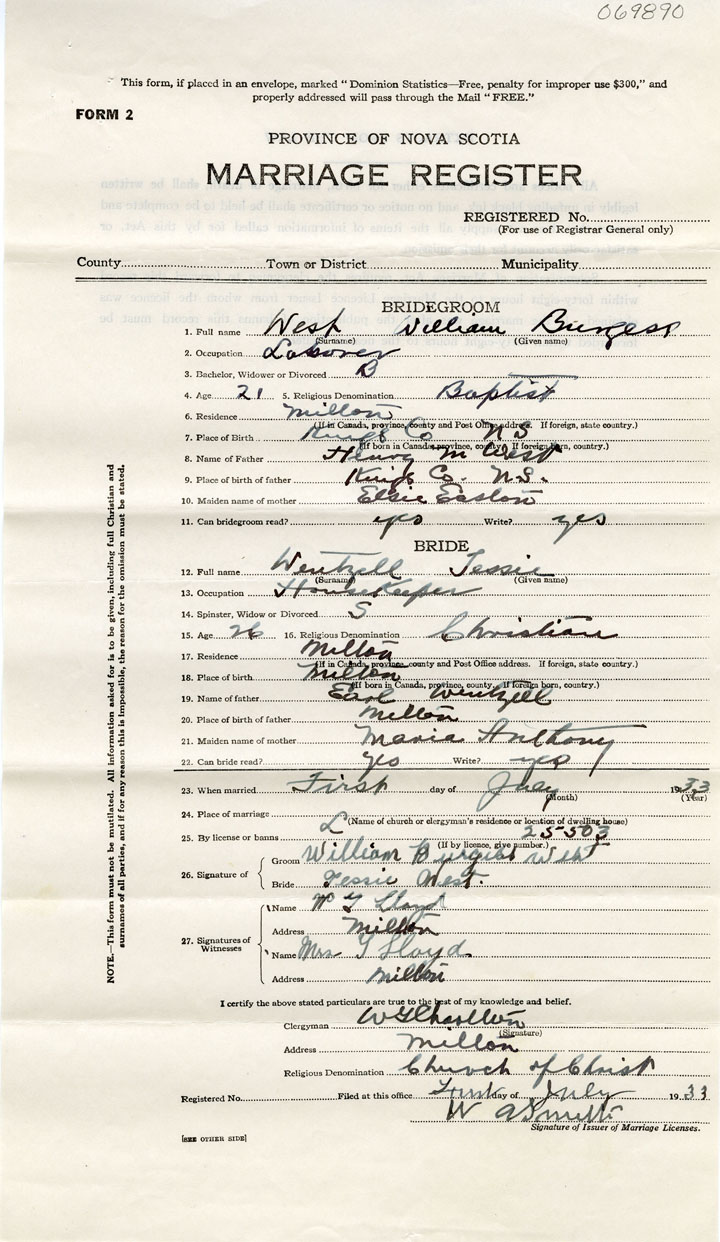 069890
This form, if placed in an envelope, marked “ Dominion Statistics—Free, penalty for improper use $300,” and
properly addressed will pass through the Mail “ FREE.”
FORM 2
PROVINCE OF NOVA SCOTIA
MARRIAGE REGISTER
REGISTERED No.
(For use of Registrar General only)
County Town or District Municipality
BRIDEGROOM
1. Full name West William Burgess
(Surname) (Given name)
2. Occupation Labourer
3. Bachelor, Widower or Divorced B
4. Age 21 5. Religious Denomination Baptist
6. Residence Milton
(If in Canada, province, county and Post Office address. If foreign, state country.)
7. Place of Birth Kings Co N S
(If born in Canada, province, county. If foreign born, country.)
8. Name of Father Henry M West
9. Place of birth of father Kings Co. N.S.
10. Maiden name of mother Elsie Easton
11. Can bridegroom read? yes Write? yes
BRIDE
12. Full name Wentzell Jessie
(Surname) (Given name)
13. Occupation Housekeeper
14. Spinster, Widow or Divorced S
15. Age 26 16. Religious Denomination Christian
17. Residence Milton
(If in Canada, province, county and Post Office address. If foreign, state country.)
18. Place of birth Milton
(If born in Canada, province, county. If foreign born, country.)
19. Name of father Earl Wentzell
20. Place of birth of father Milton
21. Maiden name of mother Maria Anthony
22. Can bride read? yes Write? yes
23. When married First day of July 1933
(Month) (Year)
24. Place of marriage
(Name of church or clergyman's residence or location of dwelling house)
25. By license or banns L 25503
(If by licence, give number.)
26. Signature of
Groom William Burgess West
Bride Jessie West.
27. Signatures of Witnesses
Name W G Lloyd
Address Milton
Name Mrs G Lloyd
Address Milton
I certify the above stated particulars are true to the best of my knowledge and belief.
Clergyman W G Charlton
(Signature)
Address Milton
Religious Denomination Church of Christ
Registered No. Filed at this office First day of July 1933
W A Smith
Signature of Issuer of Marriage Licenses.
[SEE OTHER SIDE]
NOTE.—This form must not be mutilated. All information asked for is to be given, including full Christian and
surnames of all parties, and if for any reason this is impossible, the reason for the omission must be stated.